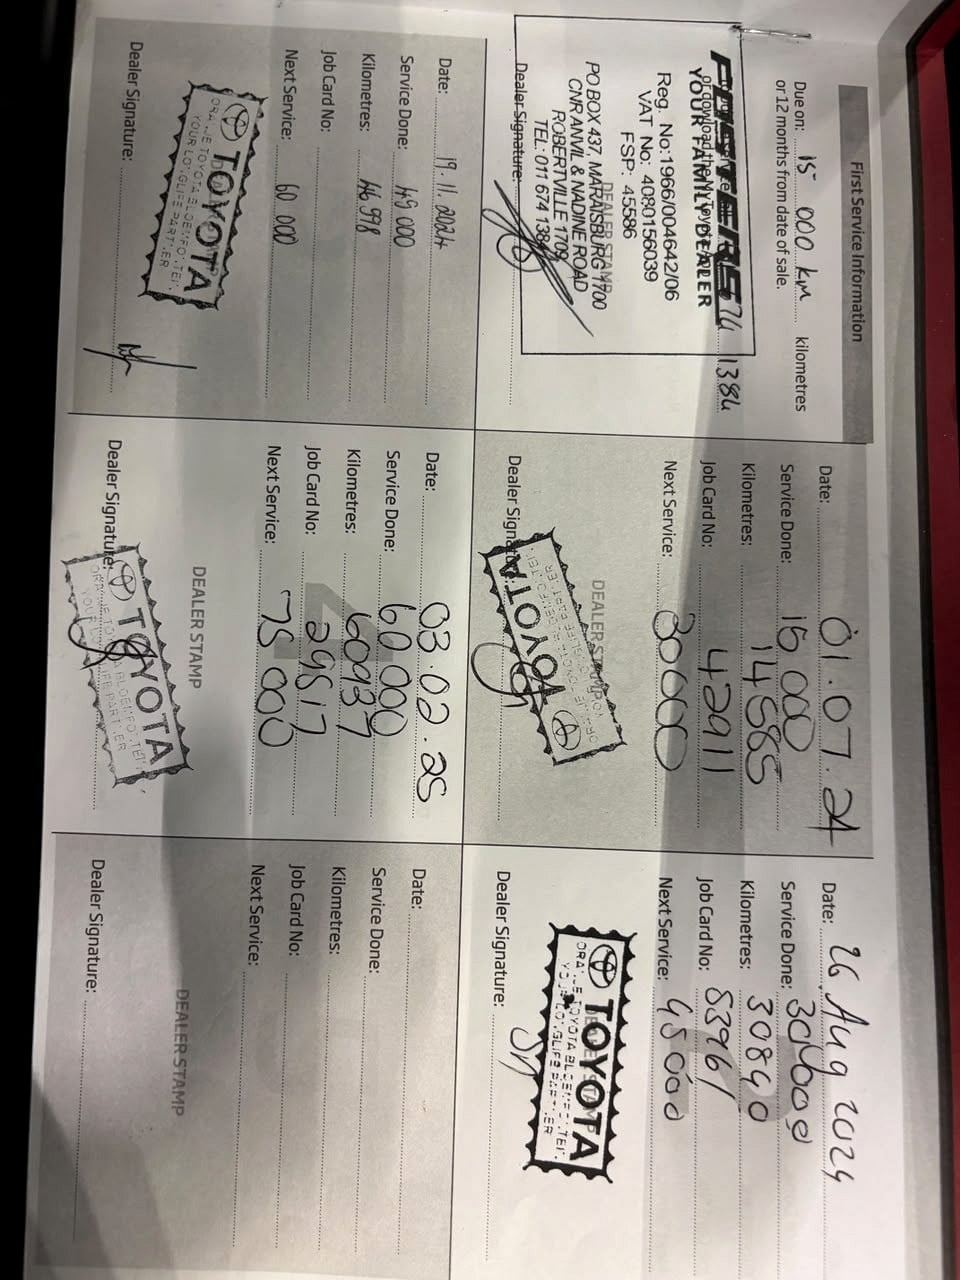 First Service Information
Due on: 15 000 km kilometres
or 12 months from date of sale.
YOUR FAMILY DEALER
Reg. No:1966/004642/06
VAT No: 4080156039
FSP: 45586
DEALER STAMP
PO BOX 437, MARAISBURG 1700
CNR ANVIL & NADINE ROAD
ROBERTVILLE 1709
TEL: 011 674 1384
Dealer Signature:
Date: 01.07.24
Service Done: 15 000
Kilometres: 14585
Job Card No: 42911
Next Service: 30000
DEALER STAMP
TOYOTA
Dealer Signature:
Date: 26 Aug 2024
Service Done: 30000
Kilometres: 30840
Job Card No: 53961
Next Service: 45000
DEALER STAMP
TOYOTA
YOUR LONGLIFE PARTNER
Dealer Signature:
Date: 19.11.2024
Service Done: 45000
Kilometres: 46998
Job Card No:
Next Service: 60 000
TOYOTA
ORANJE TOYOTA BLOEMFONTEIN
YOUR LONGLIFE PARTNER
Dealer Signature:
Date: 03.02.25
Service Done: 60 000
Kilometres: 60937
Job Card No: 29517
Next Service: 75 000
DEALER STAMP
TOYOTA
Dealer Signature:
Date:
Service Done:
Kilometres:
Job Card No:
Next Service:
DEALER STAMP
Dealer Signature: